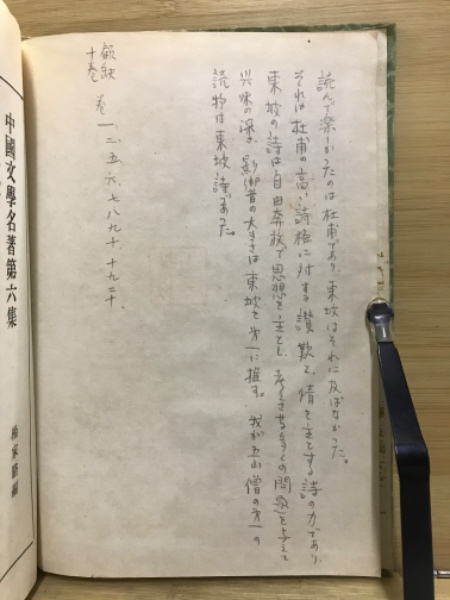 読んで楽しかったのは杜甫であり、東坡はそれに及ばなかった。
それは杜甫の高い詩格に対する讃歎と、情を主とする詩の力であり、
東坡の詩は自由奔放で思想を主とし、考えさせる多くの問題を与えて
興味の深さ、影響の大きさは東坡を第一に推す。我が五山僧の第一の
読物は東坡詩であった。
巻一、二、五、六、七、八、九、十、十九、二十、
十巻
中國文學名著第六集
楊家駱編